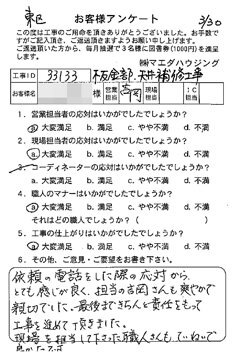 東区 お客様アンケート 3/30
この度は工事のご用命を頂きありがとうございました。お手数ですがご記入頂き、ご返送頂きますようお願い申し上げます。
ご返送頂いた方から、毎月抽選で3名様に図書券(1000円)を進呈します。
㈱マエダハウジング
工事ID 33133 板金部、天井補修工事
お客様名 様 営業担当 吉岡 現場担当 IC担当
1. 営業担当者の応対はいかがでしたでしょうか?
a 大変満足 b. 満足 c. やや不満 d. 不満
2. 現場担当者の応対はいかがでしたでしょうか?
a 大変満足 b. 満足 c. やや不満 d. 不満
3. コーディネーターの応対はいかがでしたでしょうか?
a. 大変満足 b. 満足 c. やや不満 d. 不満
4. 職人のマナーはいかがでしたでしょうか?
a 大変満足 b. 満足 c. やや不満 d. 不満
それはどの職人でしょうか?( )
5. 工事の仕上がりはいかがでしたでしょうか?
a 大変満足 b. 満足 c. やや不満 d. 不満
6. その他、ご意見・ご要望をお書き下さい。
依頼の電話をした際の応対から、
とても感じが良く、担当の吉岡さんも爽やかで
親切でした。最後まできちんと責任をもって
工事を進めて頂きました。
現場を担当して下さった職人さんもていねいで